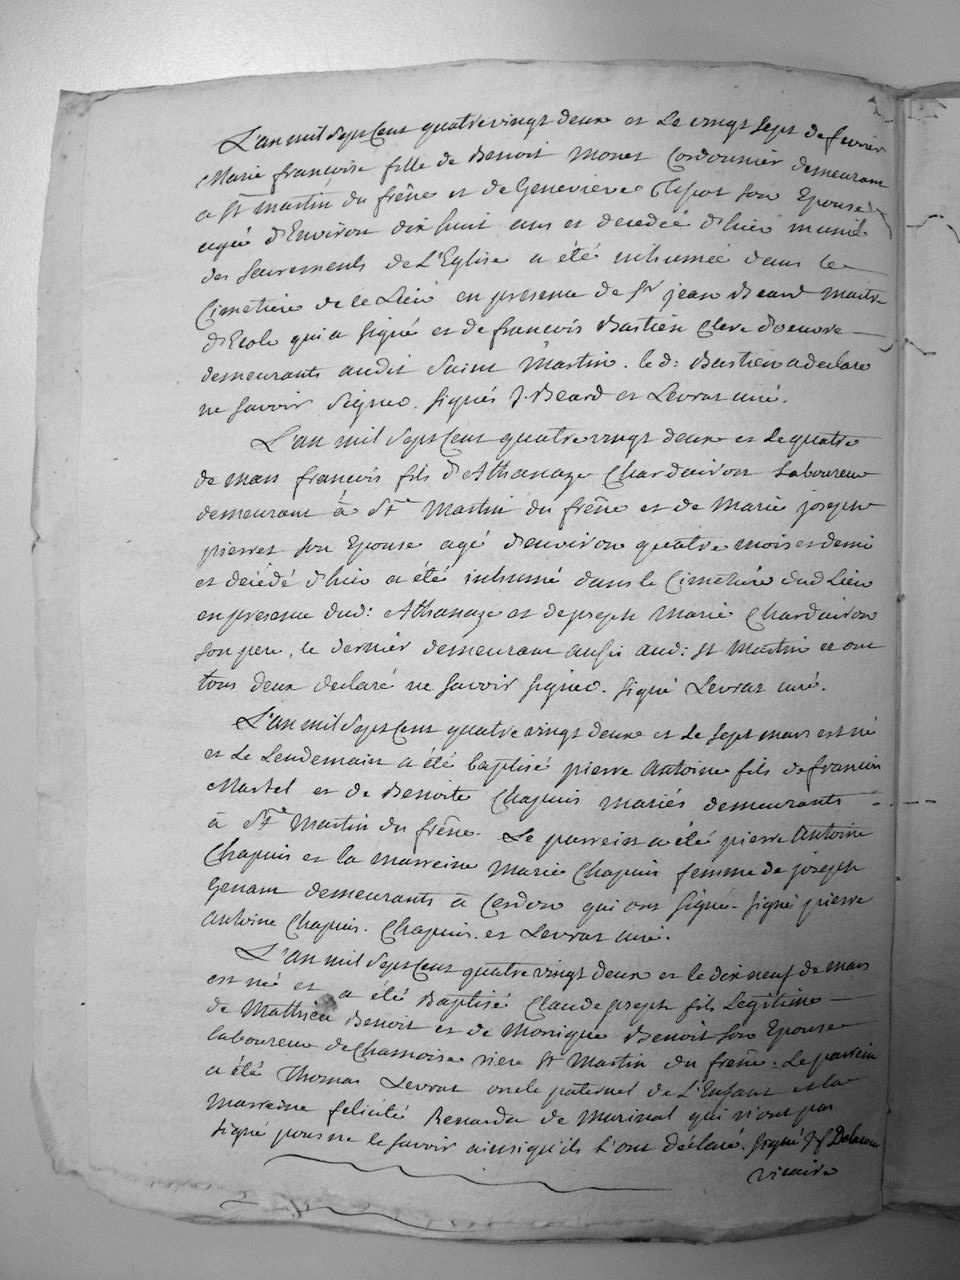 L'an mil sept Cent quatre vingt deux et Le vingt sept de fevrier
Marie francoise fille de Benoit Monet Cordonnier demeurant
a St martin du frêne et de Genevieve son Epouse
agée d'Environ dix huit ans et decedée d'hier munie
des Sacrements de L'Eglise a été inhumée dans le
Cimetiere de ce Lieu en presence de Sr jean Beard Maitre
d'Ecole qui a signé et de francois Bastien Clerc d'oeuvre
demeurants audit Saint Martin. led: Bastien a declaré
ne savoir signer. signés J. Beard et Levrat curé.
L'an mil sept Cent quatre vingt deux et Le quatre
de mars francois fils d'Athanaze Chardeiron Laboureur
demeurant à St Martin du frêne et de Marie joseph
pierret son Epouse agé d'environ quatre mois et demi
et décédé d'hier a été inhumé dans le Cimetiére dud Lieu
en presence dud: Athanaze et de joseph Marie Chardeiron
son pere, le dernier demeurant aussi aud: St Martin et ont
tous deux declaré ne savoir signer. signé Levrat curé.
L'an mil sept Cent quatre vingt deux et Le sept mars est né
et Le Lendemain a été baptisé pierre Antoine fils de francois
Martel et de Benoite Chapuis mariés demeurants
à St Martin du frêne. Le parrein a été pierre Antoine
Chapuis et la marreine Marie Chapuis femme de joseph
Genam demeurants à Cerdon qui ont signé. signé pierre
Antoine Chapuis. Chapuis. et Levrat curé.
L'an mil sept Cent quatre vingt deux et le dix neuf de mars
est né et a été Baptisé Claude joseph fils Legitime
de Mathieu Benoit et de Monique Benoit son Epouse
laboureur de Chamoise riere St Martin du frêne. Le parrein
a été Thomas Levrat oncle paternel de L'Enfant et la
marreine felicité Renarda de Murinal qui n'ont pas
signé pour ne le savoir ainsi qu'ils l'ont déclaré. signé
vicaire